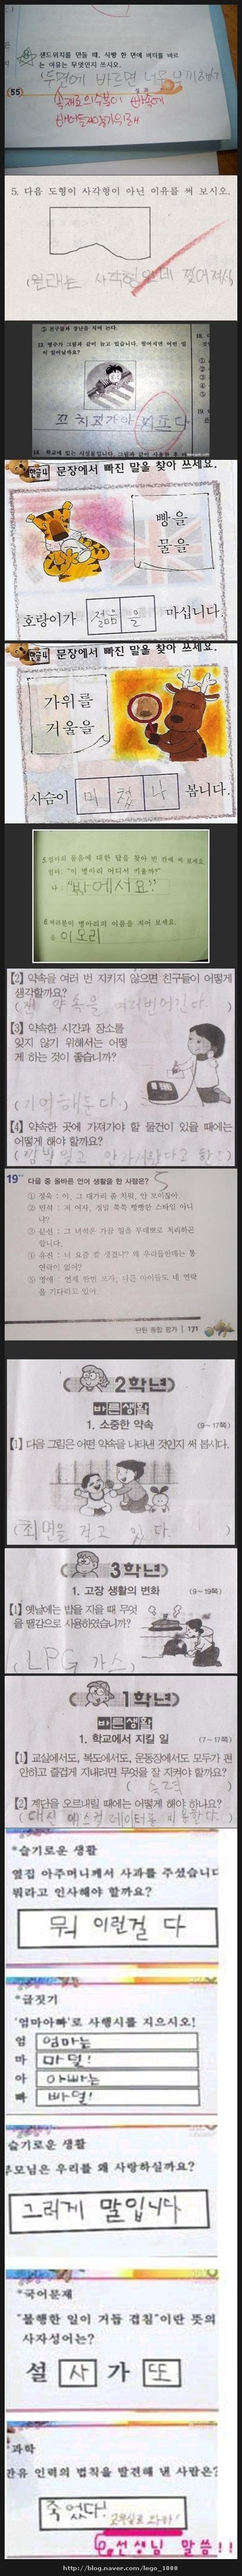 샌드위치를 만들 때, 식빵 한 면에 버터를 바르
는 이유는 무엇인지 쓰시오.
두면에 바르면 너무 느끼해서
55
속재료의 수분이 빵속에
배어들지않게하기위해
5. 다음 도형이 사각형이 아닌 이유를 써 보시오.
(원래는 사각형인데 찢어져서)
13 영수가 그림과 같이 놀고 있습니다. 떨어지면 어떤 일
이 일어날까요?
꼬치꼬가아 찌푸다
한글4 문장에서 빠진 말을 찾아 쓰세요.
빵을
물을
호랑이가 젊음 을 마십니다.
한글4 문장에서 빠진 말을 찾아 쓰세요.
가위를
거울을
사슴이 미 쳤 나 봅니다.
5. 엄마의 물음에 대한 답을 찾아 빈 칸에 써 보세요.
엄마: "이 병아리 어디서 키울까?"
나: "밖에서요"
6. 여러분이 병아리의 이름을 지어 보세요.
이오리
【2】 약속을 여러 번 지키지 않으면 친구들이 어떻게
생각할까요?
(쟨 약속을 여러번어긴다.)
【3】 약속한 시간과 장소를
잊지 않기 위해서는 어떻
게 하는 것이 좋습니까?
(기억해둔다.)
【4】 약속한 곳에 가져가야 할 물건이 있을 때에는
어떻게 해야 할까요?
(깜빡잊고 안가져왔다고 한다)
19 다음 중 올바른 언어 생활을 한 사람은? 5
① 경욱 : 야, 그 대가리 좀 치워, 안 보이잖아.
② 민석 : 저 여자, 정말 쭉쭉 빵빵한 스타일 아니
냐?
③ 문신 : 그 녀석은 가끔 일을 무데뽀로 처리하곤
합니다.
④ 유진 : 너 요즘 깔 생겼냐? 왜 우리들한테는 통
연락이 없어?
⑤ 영애 : 언제 한번 보자, 다른 아이들도 네 연락
을 기다리고 있어.
단원 종합 평가 | 171
2학년
바른생활
1. 소중한 약속 (9~17쪽)
【1】 다음 그림은 어떤 약속을 나타낸 것인지 써 봅시다.
(최면을 걸고 있다.)
3학년
1. 고장 생활의 변화 (9~19쪽)
【1】 옛날에는 밥을 지을 때 무엇
을 땔감으로 사용하였습니까?
(LPG 가스)
1학년
바른생활
1. 학교에서 지킬 일 (7~17쪽)
【1】 교실에서도, 복도에서도, 운동장에서도 모두가 편
안하고 즐겁게 지내려면 무엇을 잘 지켜야 할까요?
(속력)
【2】 계단을 오르내릴 때에는 어떻게 해야 하나요?
(대신 에스컬레이터를 이용한다.)
*슬기로운 생활
옆집 아주머니께서 사과를 주셨습니다
뭐라고 인사해야 할까요?
뭐 이런걸 다
*글짓기
'엄마아빠'로 사행시를 지으시오!
엄 엄마는
마 마덜!
아 아빠는
빠 빠덜!
슬기로운 생활
부모님은 우리를 왜 사랑하실까요?
그러게 말입니다
*국어문제
"불행한 일이 거듭 겹침"이란 뜻의
사자성어는?
설 사 가 또
*과학
만유 인력의 법칙을 발견해 낸 사람은?
죽었다!
선생님 말씀!!
http://blog.naver.com/lego_1000